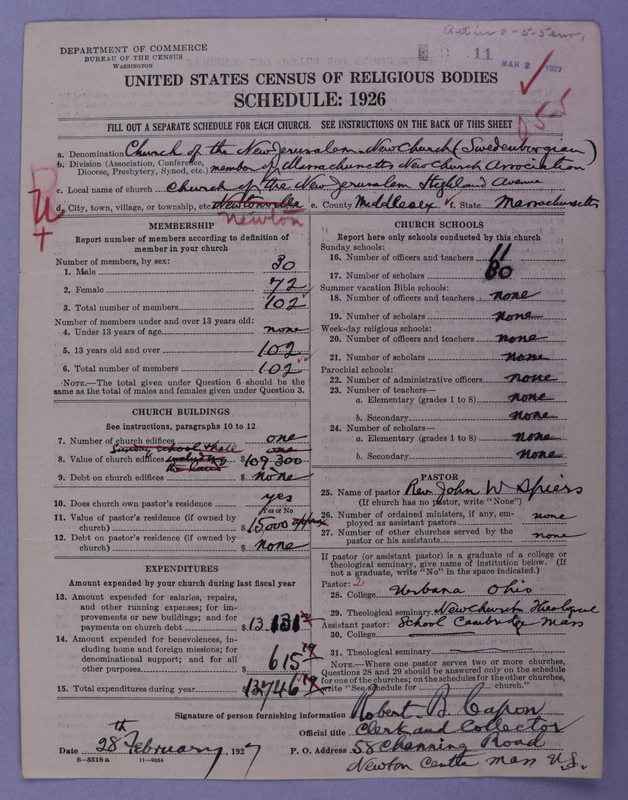 11
MAR 2 1927
DEPARTMENT OF COMMERCE
BUREAU OF THE CENSUS
WASHINGTON
UNITED STATES CENSUS OF RELIGIOUS BODIES
SCHEDULE: 1926
FILL OUT A SEPARATE SCHEDULE FOR EACH CHURCH. SEE INSTRUCTIONS ON THE BACK OF THIS SHEET
a. Denomination Church of the New Jerusalem. New Church (Swedenborgian)
b. Division (Association, Conference, Diocese, Presbytery, Synod, etc.) member of Massachusetts New Church Association
c. Local name of church Church of the New Jerusalem Highland Avenue
d. City, town, village, or township, etc. Newtonville e. County Middlesex f. State Massachusetts
Newton
MEMBERSHIP
Report number of members according to definition of
member in your church
Number of members, by sex:
1. Male 30
2. Female 72
3. Total number of members 102
Number of members under and over 13 years old:
4. Under 13 years of age none
5. 13 years old and over 102
6. Total number of members 102
NOTE.—The total given under Question 6 should be the
same as the total of males and females given under Question 3.
CHURCH BUILDINGS
See instructions, paragraphs 10 to 12
7. Number of church edifices one
Sunday school & hall one
8. Value of church edifices $109,300
9. Debt on church edifices $ none
10. Does church own pastor's residence yes
Yes or No
11. Value of pastor's residence (if owned by
church) $15,000 approx
12. Debt on pastor's residence (if owned by
church) $ none
EXPENDITURES
Amount expended by your church during last fiscal year
13. Amount expended for salaries, repairs,
and other running expenses; for im-
provements or new buildings; and for
payments on church debt $13,131
14. Amount expended for benevolences, in-
cluding home and foreign missions; for
denominational support; and for all
other purposes $ 615 19
15. Total expenditures during year $13746 19
CHURCH SCHOOLS
Report here only schools conducted by this church
Sunday schools:
16. Number of officers and teachers 11
17. Number of scholars 80
Summer vacation Bible schools:
18. Number of officers and teachers none
19. Number of scholars none
Week-day religious schools:
20. Number of officers and teachers none
21. Number of scholars none
Parochial schools:
22. Number of administrative officers none
23. Number of teachers—
a. Elementary (grades 1 to 8) none
b. Secondary none
24. Number of scholars—
a. Elementary (grades 1 to 8) none
b. Secondary none
PASTOR
25. Name of pastor Rev. John W Spiers
(If church has no pastor, write "None")
26. Number of ordained ministers, if any, em-
ployed as assistant pastors none
27. Number of other churches served by the
pastor or his assistants none
If pastor (or assistant pastor) is a graduate of a college or
theological seminary, give name of institution below. (If
not a graduate, write "No" in the space indicated.)
Pastor: 2
28. College Urbana Ohio
29. Theological seminary New Church Theological
Assistant pastor: School Cambridge Mass
30. College
31. Theological seminary
NOTE.—Where one pastor serves two or more churches,
Questions 28 and 29 should be answered only on the schedule
for one of the churches; on the schedules for the other churches,
write "See schedule for church."
Signature of person furnishing information Robert B Capon
Official title Clerk and Collector
Date 28th February, 1927 P. O. Address 58 Channing Road
Newton Centre Mass U.S.
8—5518 a 11—9054